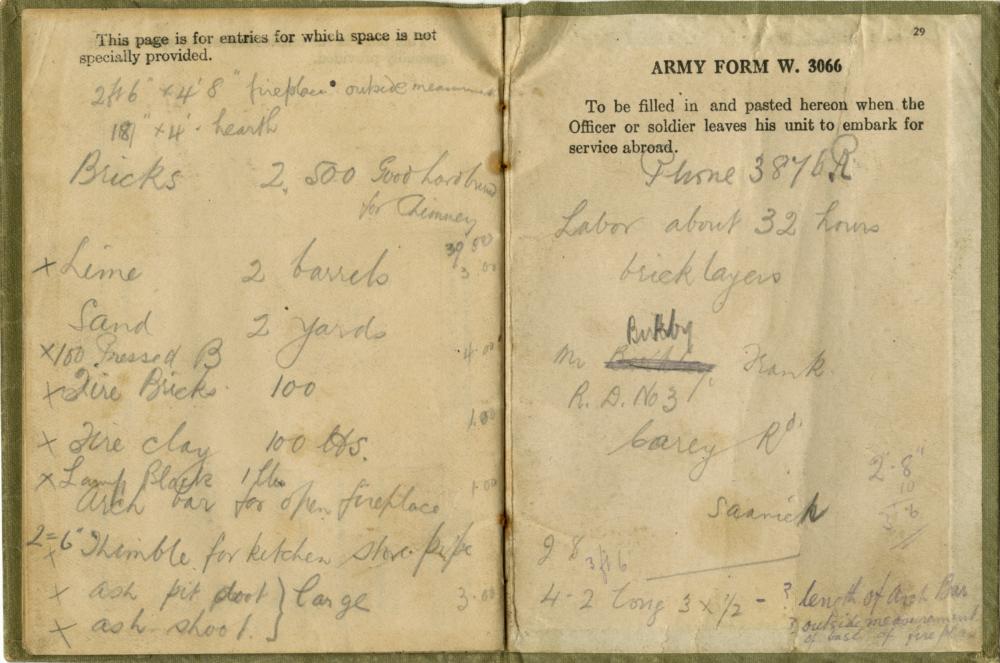 This page is for entries for which space is not
specially provided.
2ft 6" x 4' 8" fireplace outside measurement
18" x 4' - hearth
Bricks 2,500 Good hard
for Chimney
39.00
x Lime 2 barrels 3.00
Sand 2 yards
x 100 Pressed B 4.00
x Fire Bricks 100
1.00
x Fire clay 100 lbs.
x Lamp Black 1 lb 1.00
Arch bar for open fireplace
2=6" Thimble for kitchen stove pipe
x ash pit door } large 3.00
x ash shoot.
29
ARMY FORM W. 3066
To be filled in and pasted hereon when the
Officer or soldier leaves his unit to embark for
service abroad.
Phone 3876 R
Labor about 32 hours
bricklayers
Bixby
Mr Frank
R. D. No 3
Carey Rd
2-8"
10
Saanich
9 8
3ft 6
4-2 long 3 x 1/2 - ? length of Arch Bar
? outside measurement
of base of fireplace